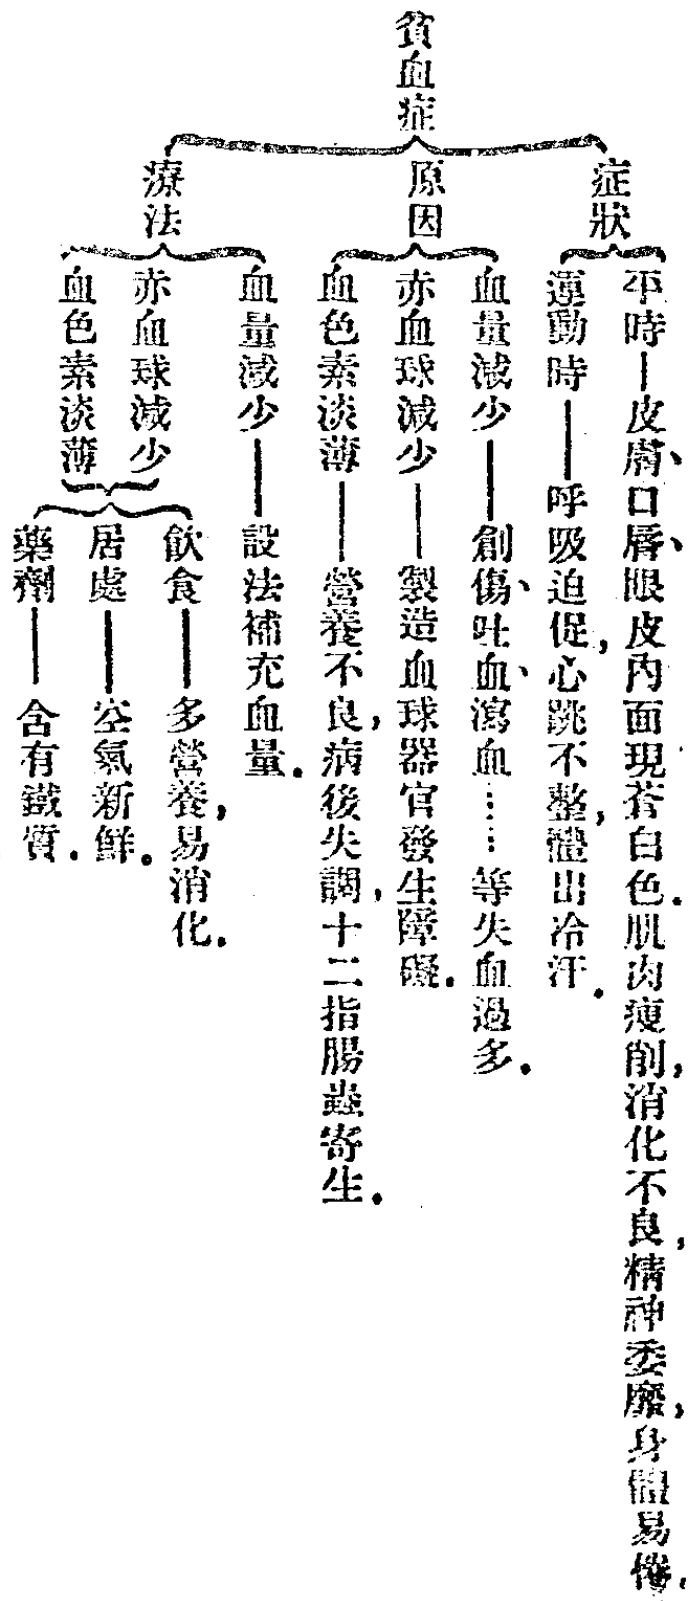 貧血症
症狀
平時—皮膚、口唇、眼皮內面現蒼白色.肌肉瘦削,消化不良,精神委靡,身體易倦.
運動時—呼吸迫促,心跳不整,體出冷汗.
原因
血量減少—創傷、吐血、瀉血……等失血過多.
赤血球減少—製造血球器官發生障礙.
血色素淡薄—營養不良,病後失調,十二指腸蟲寄生.
療法
血量減少—設法補充血量.
赤血球減少
血色素淡薄
飲食—多營養,易消化.
居處—空氣新鮮.
藥劑—含有鐵質.